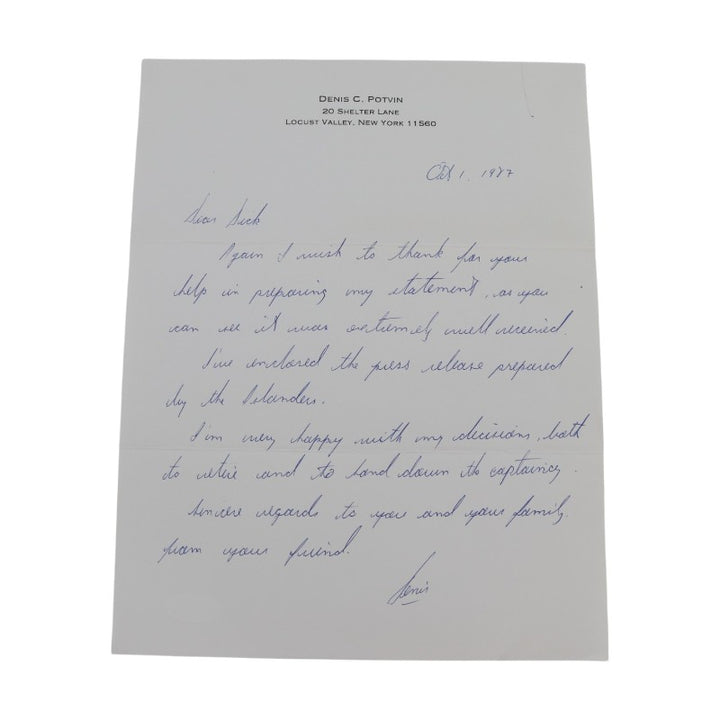 DENIS C. POTVIN
20 SHELTER LANE
LOCUST VALLEY, NEW YORK 11560
Oct 1, 1987
Dear Dick
Again I wish to thank for your
help in preparing my statement, as you
can see it was extremely well received.
I've enclosed the press release prepared
by the Islanders.
I'm very happy with my decisions, both
to retire and to hand down the captaincy.
Sincere regards to you and your family.
from your friend.
Denis